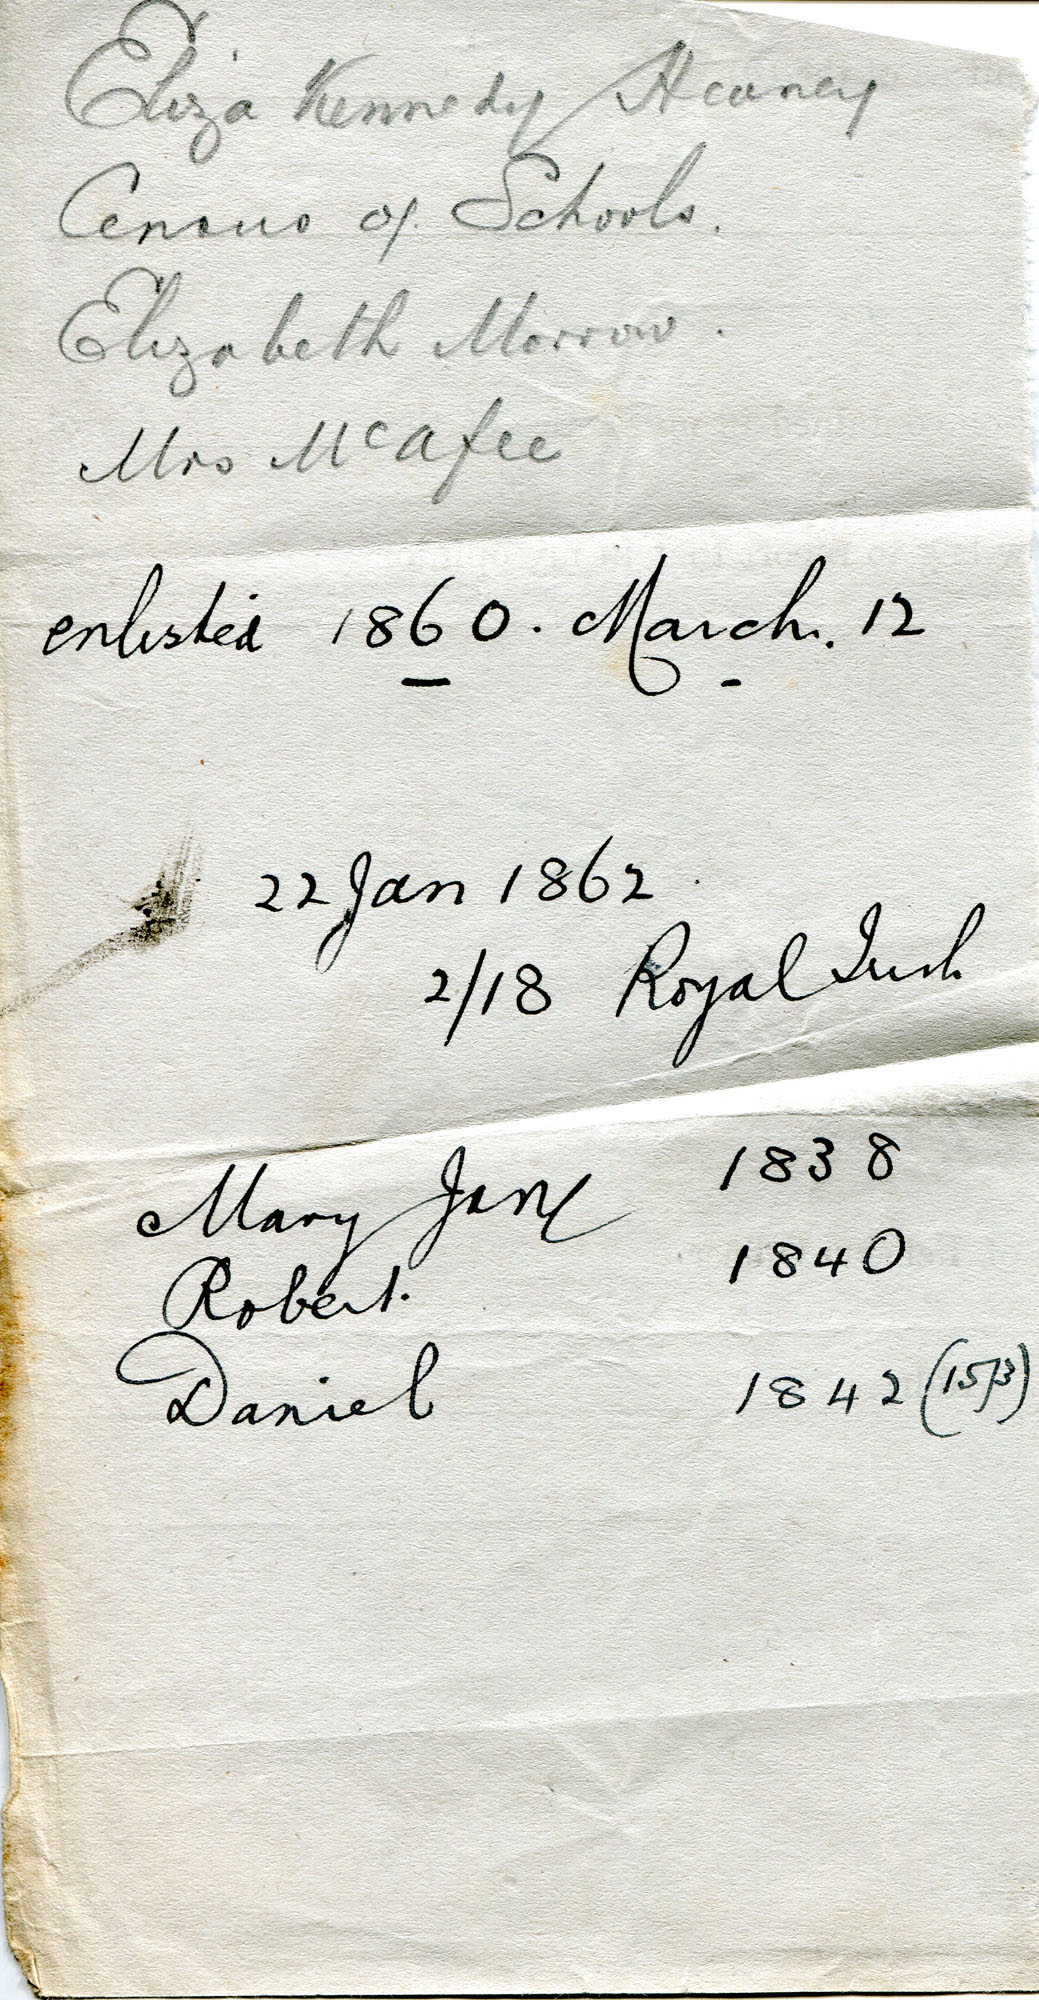 Eliza Kennedy Heaney
Census of Schools.
Elizabeth Morrow.
Mrs McAfee
enlisted 1860. March. 12
22 Jan 1862
2/18 Royal Irish
Mary Jane 1838
Robert. 1840
Daniel 1842 (15/3)